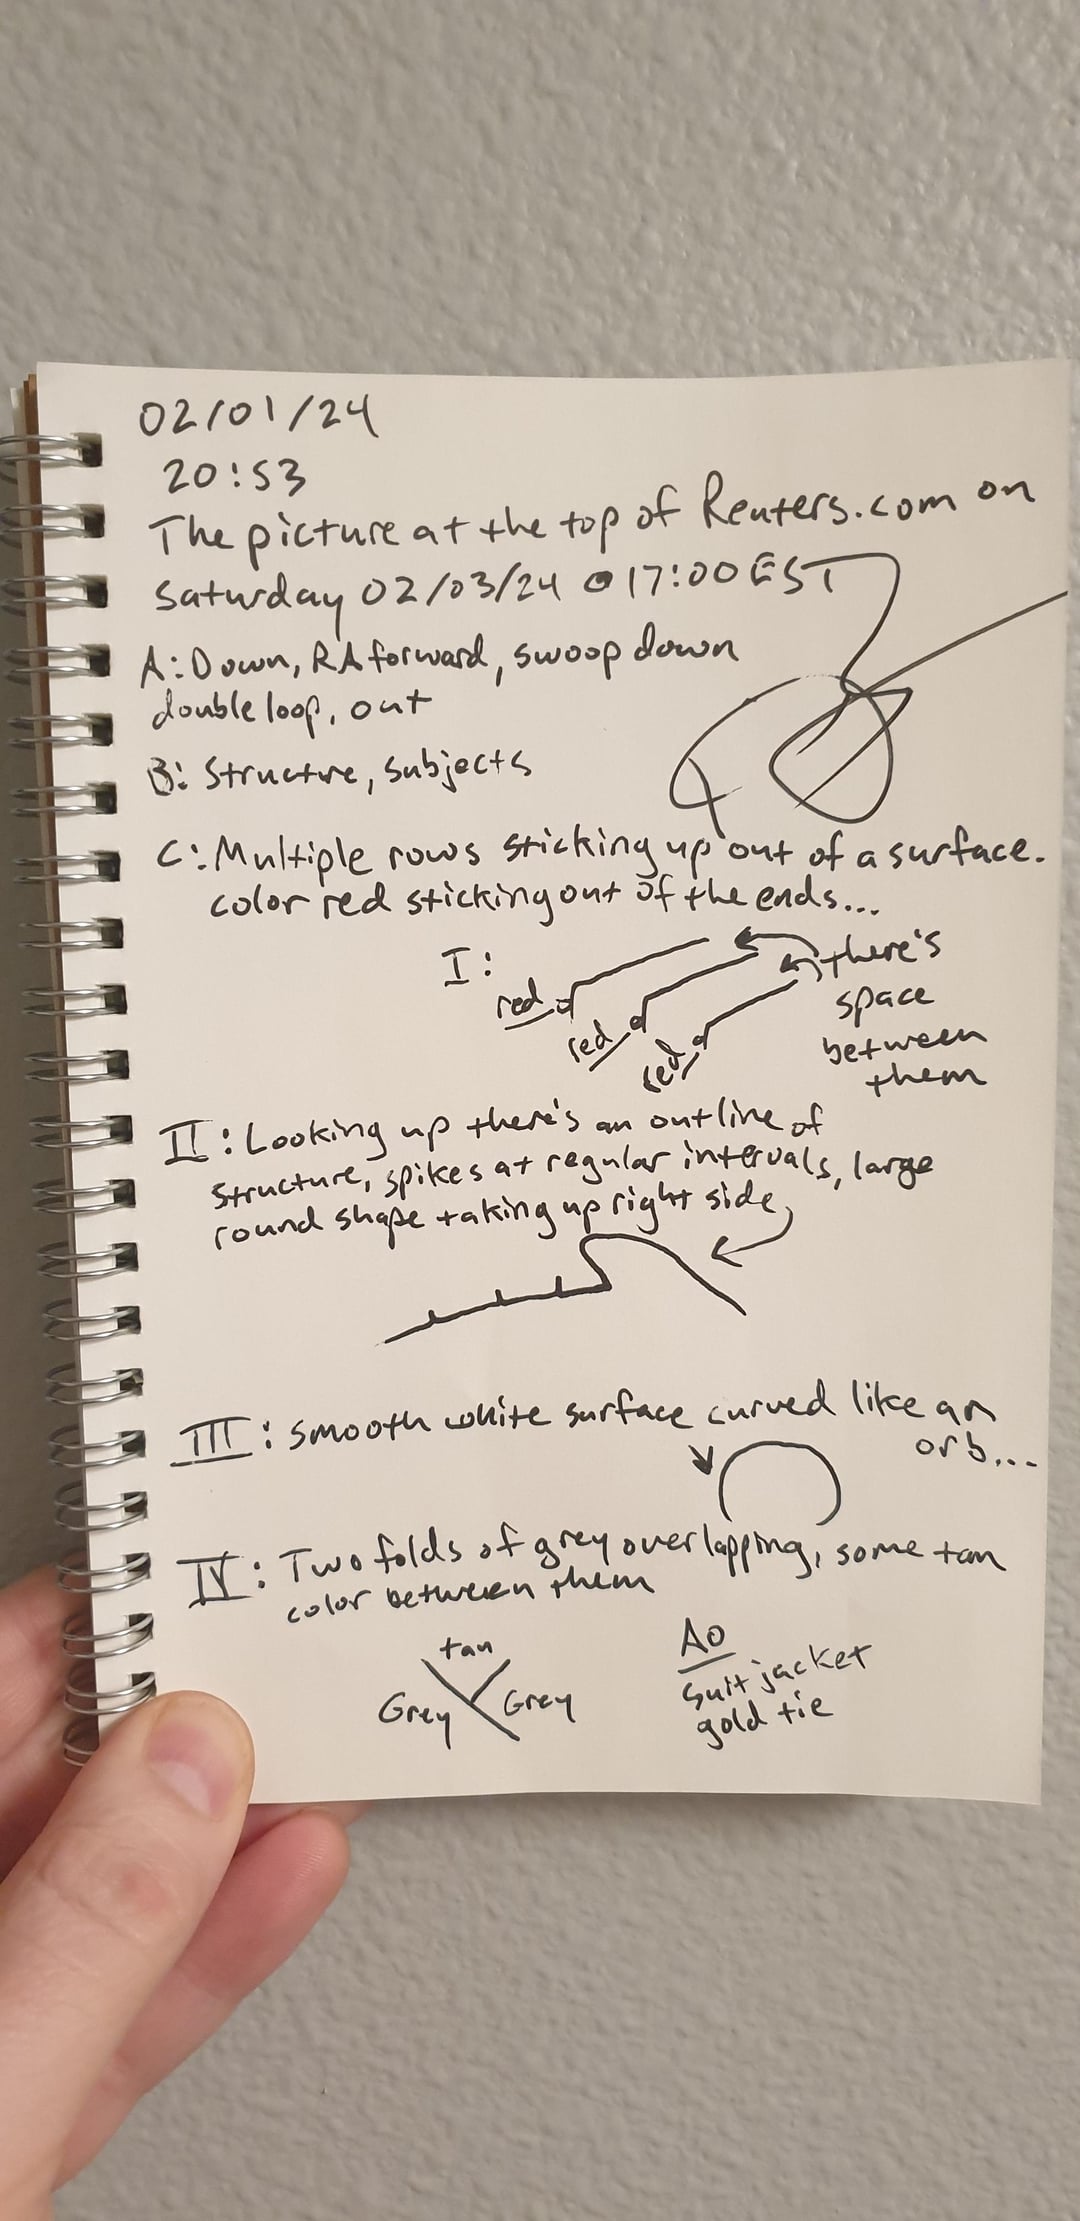 02/01/24
20:53
The picture at the top of Reuters.com on
Saturday 02/03/24 @ 17:00 EST
A: Down, RA forward, swoop down
double loop, out
B: Structure, subjects
C: Multiple rows sticking up out of a surface.
color red sticking out of the ends...
I:
there's
space
between
them
red
red
red
II: Looking up there's an outline of
structure, spikes at regular intervals, large
round shape taking up right side
III: smooth white surface curved like an
orb...
IV: Two folds of grey overlapping, some tan
color between them
tan
Grey Grey
AO
suit jacket
gold tie